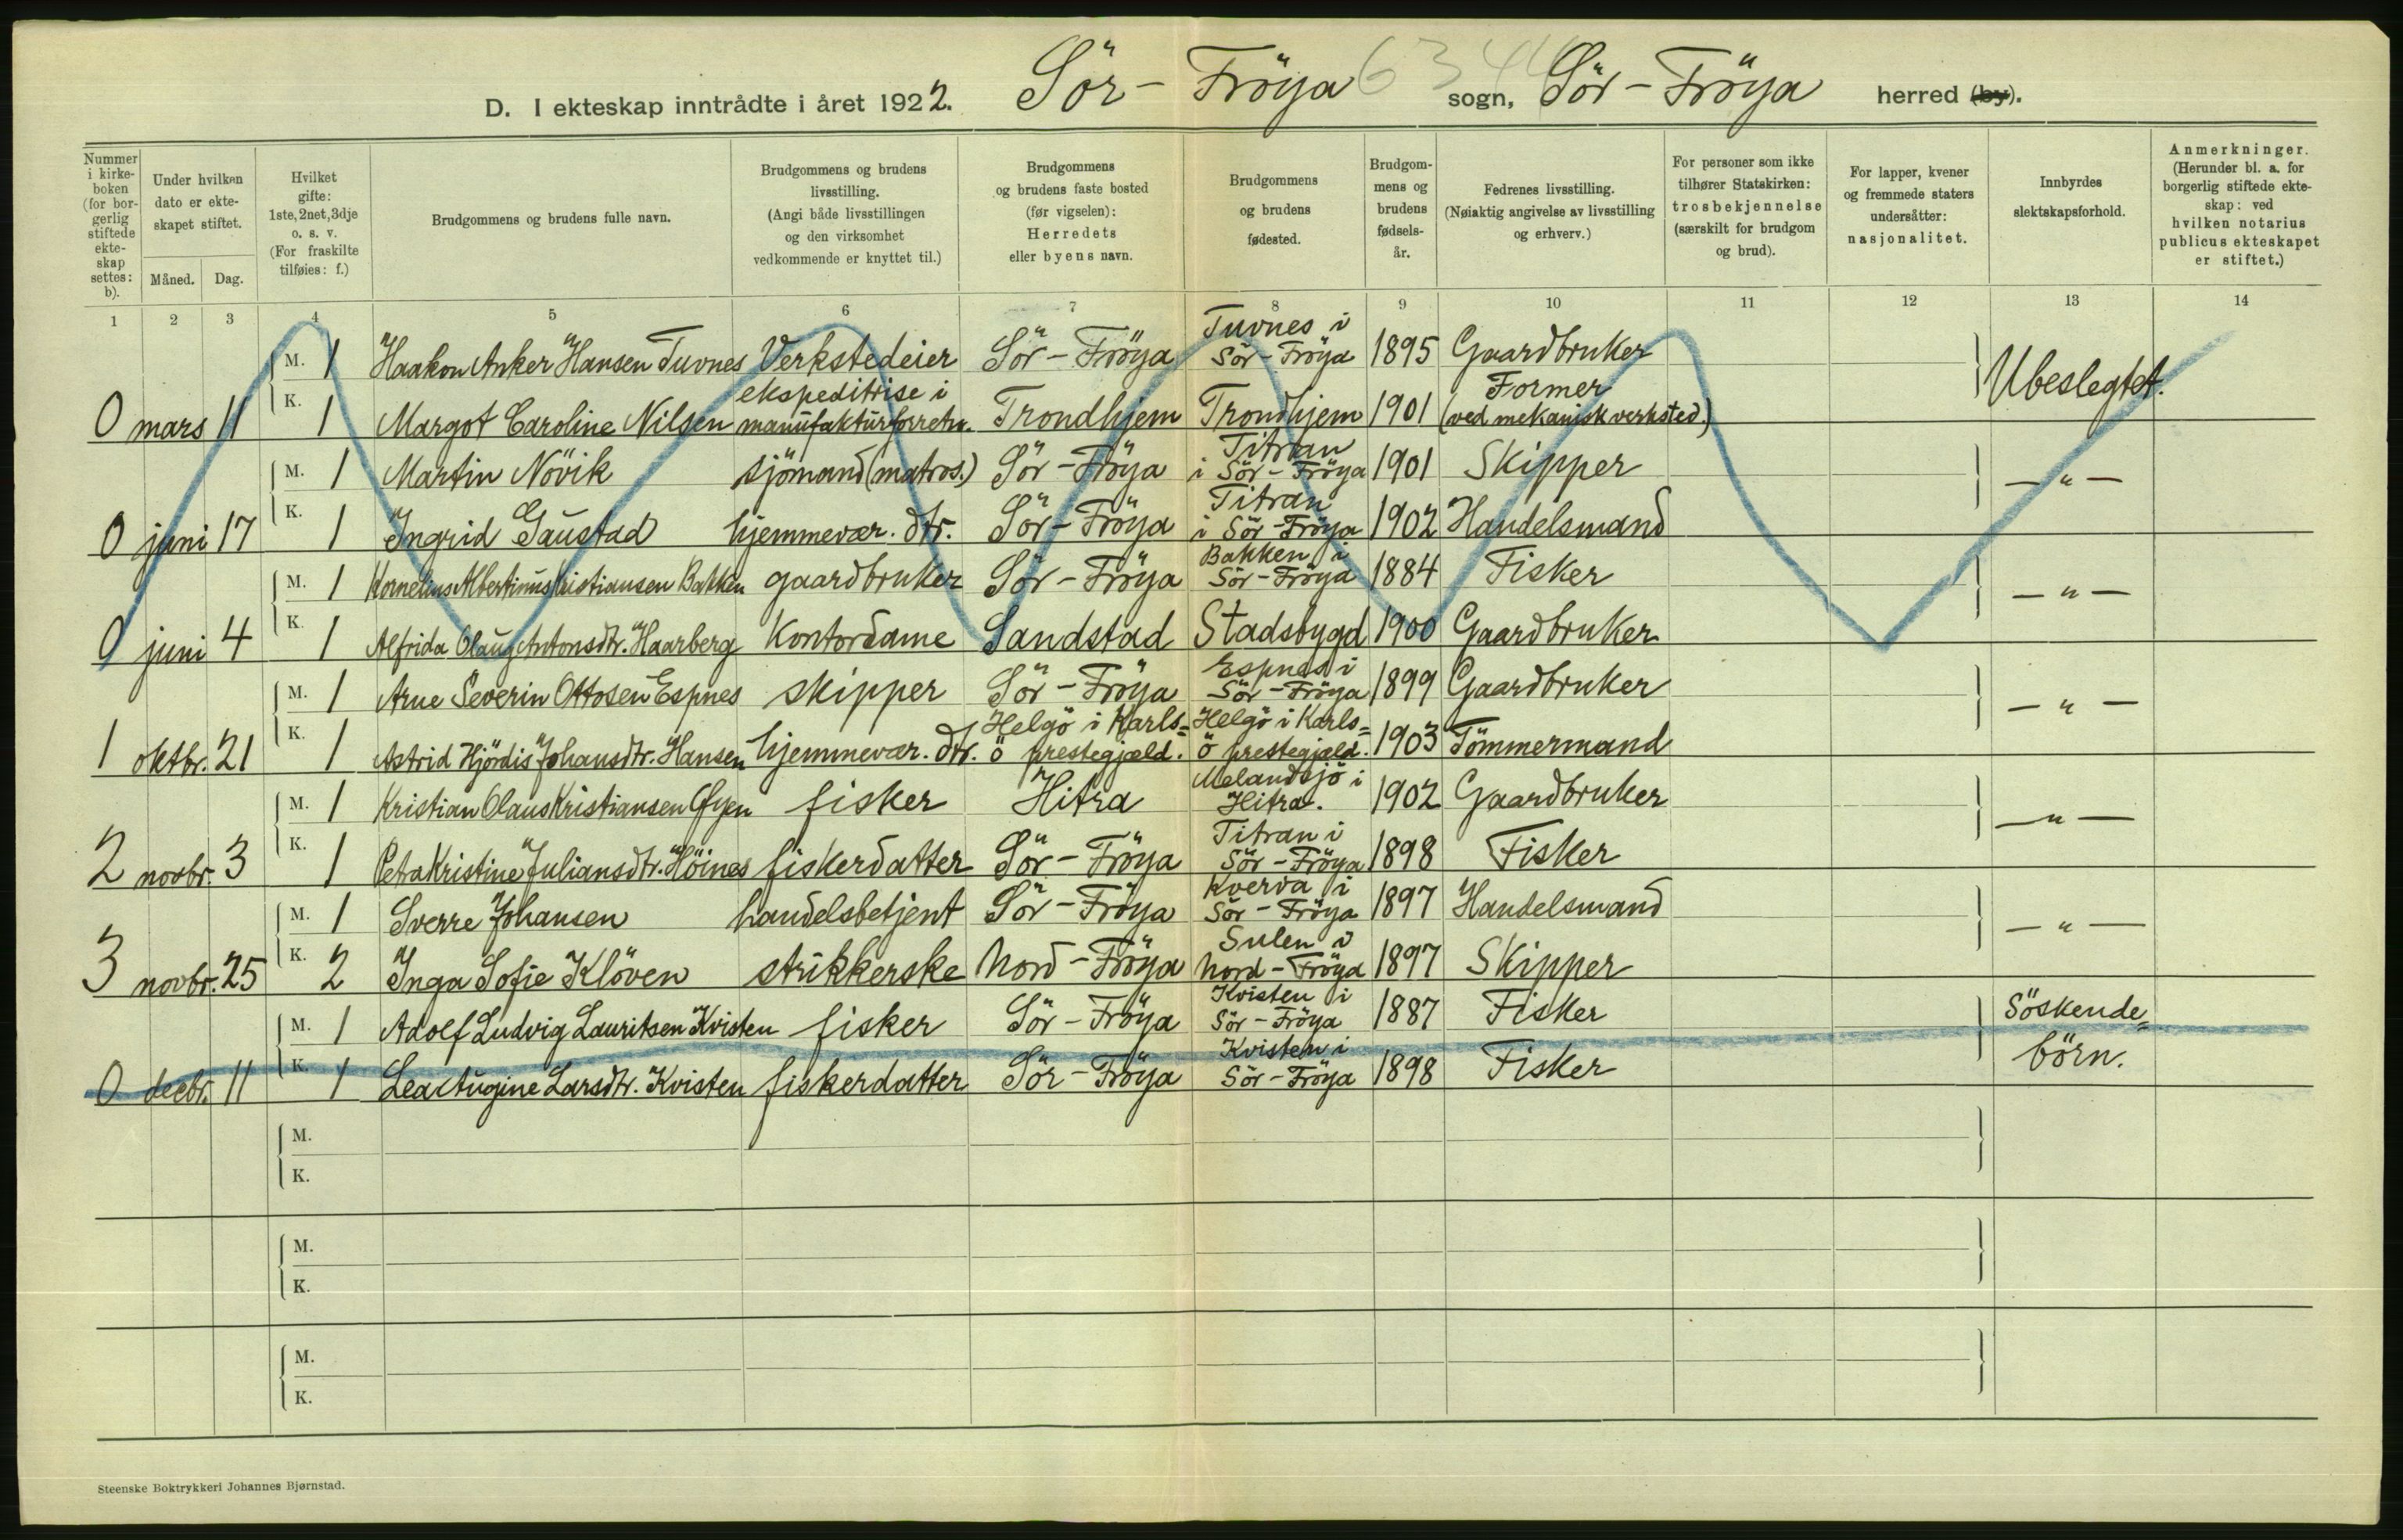 D. I ekteskap inntrådte i året 1922. Sör-Fröya sogn, Sör-Fröya herred (by).
Nummer i kirkeboken (for borgerlig stiftede ekteskap settes: b).
Under hvilken dato er ekteskapet stiftet.
Måned. Dag.
Hvilket gifte: 1ste, 2net, 3dje o. s. v. (For fraskilte tilføies: f.)
Brudgommens og brudens fulle navn.
Brudgommens og brudens livsstilling. (Angi både livsstillingen og den virksomhet vedkommende er knyttet til.)
Brudgommens og brudens faste bosted (før vigselen): Herredets eller byens navn.
Brudgommens og brudens fødested.
Brudgommens og brudens fødselsår.
Fedrenes livsstilling. (Nøiaktig angivelse av livsstilling og erhverv.)
For personer som ikke tilhører Statskirken: trosbekjennelse (særskilt for brudgom og brud).
For lapper, kvener og fremmede staters undersåtter: nasjonalitet.
Innbyrdes slektskapsforhold.
Anmerkninger. (Herunder bl. a. for borgerlig stiftede ekteskap: ved hvilken notarius publicus ekteskapet er stiftet.)
1 2 3 4 5 6 7 8 9 10 11 12 13 14
M. 1 Haakon Anker Hansen Tuvnes Verkstedeier Sör-Fröya Tuvnes i Sör-Fröya 1895 Gaardbruker Ubeslegtet.
0 mars 11 K. 1 Margot Caroline Nilsen ekspeditrise i manufakturforretn. Trondhjem Trondhjem 1901 Former (ved mekanisk verksted.)
M. 1 Martin Növik sjömand (matros.) Sör-Fröya Titran i Sör-Fröya 1901 Skipper — " —
0 juni 17 K. 1 Ingrid Gaustad hjemmevær. dtr. Sör-Fröya Titran i Sör-Fröya 1902 Handelsmand
M. 1 Kornelius Albertinus Kristiansen Bakken gaardbruker Sör-Fröya Bakken i Sör-Fröya 1884 Fisker — " —
0 juni 4 K. 1 Alfrida Olaug Antonsdtr. Haarberg Kontordame Sandstad Stadsbygd 1900 Gaardbruker
M. 1 Arne Severin Ottosen Espnes skipper Sör-Fröya Espnes i Sör-Fröya 1899 Gaardbruker — " —
1 oktbr. 21 K. 1 Astrid Hjördis Johansdtr. Hansen hjemmevær. dtr. Helgö i Karls=ö prestegjæld. Helgö i Karls=ö prestegjæld. 1903 Tömmermand
M. 1 Kristian Olaus Kristiansen Ofyen fisker Hitra Melandsjö i Hitra. 1902 Gaardbruker — " —
2 novbr. 3 K. 1 Petra Kristine Juliansdtr. Höines fiskerdatter Sör-Fröya Titran i Sör-Fröya 1898 Fisker
M. 1 Sverre Johansen handelsbetjent Sör-Fröya Kverva i Sör-Fröya 1897 Handelsmand — " —
3 novbr. 25 K. 2 Inga Sofie Klöven strikkerske Nord-Fröya Sulen i Nord-Fröya 1897 Skipper
M. 1 Adolf Ludvig Lauritsen Kvisten fisker Sör-Fröya Kvisten i Sör-Fröya 1887 Fisker Söskende=börn.
0 decbr. 11 K. 1 Lea Augine Larsdtr. Kvisten fiskerdatter Sör-Fröya Kvisten i Sör-Fröya 1898 Fisker
M.
K.
M.
K.
M.
K.
Steenske Boktrykkeri Johannes Bjørnstad.